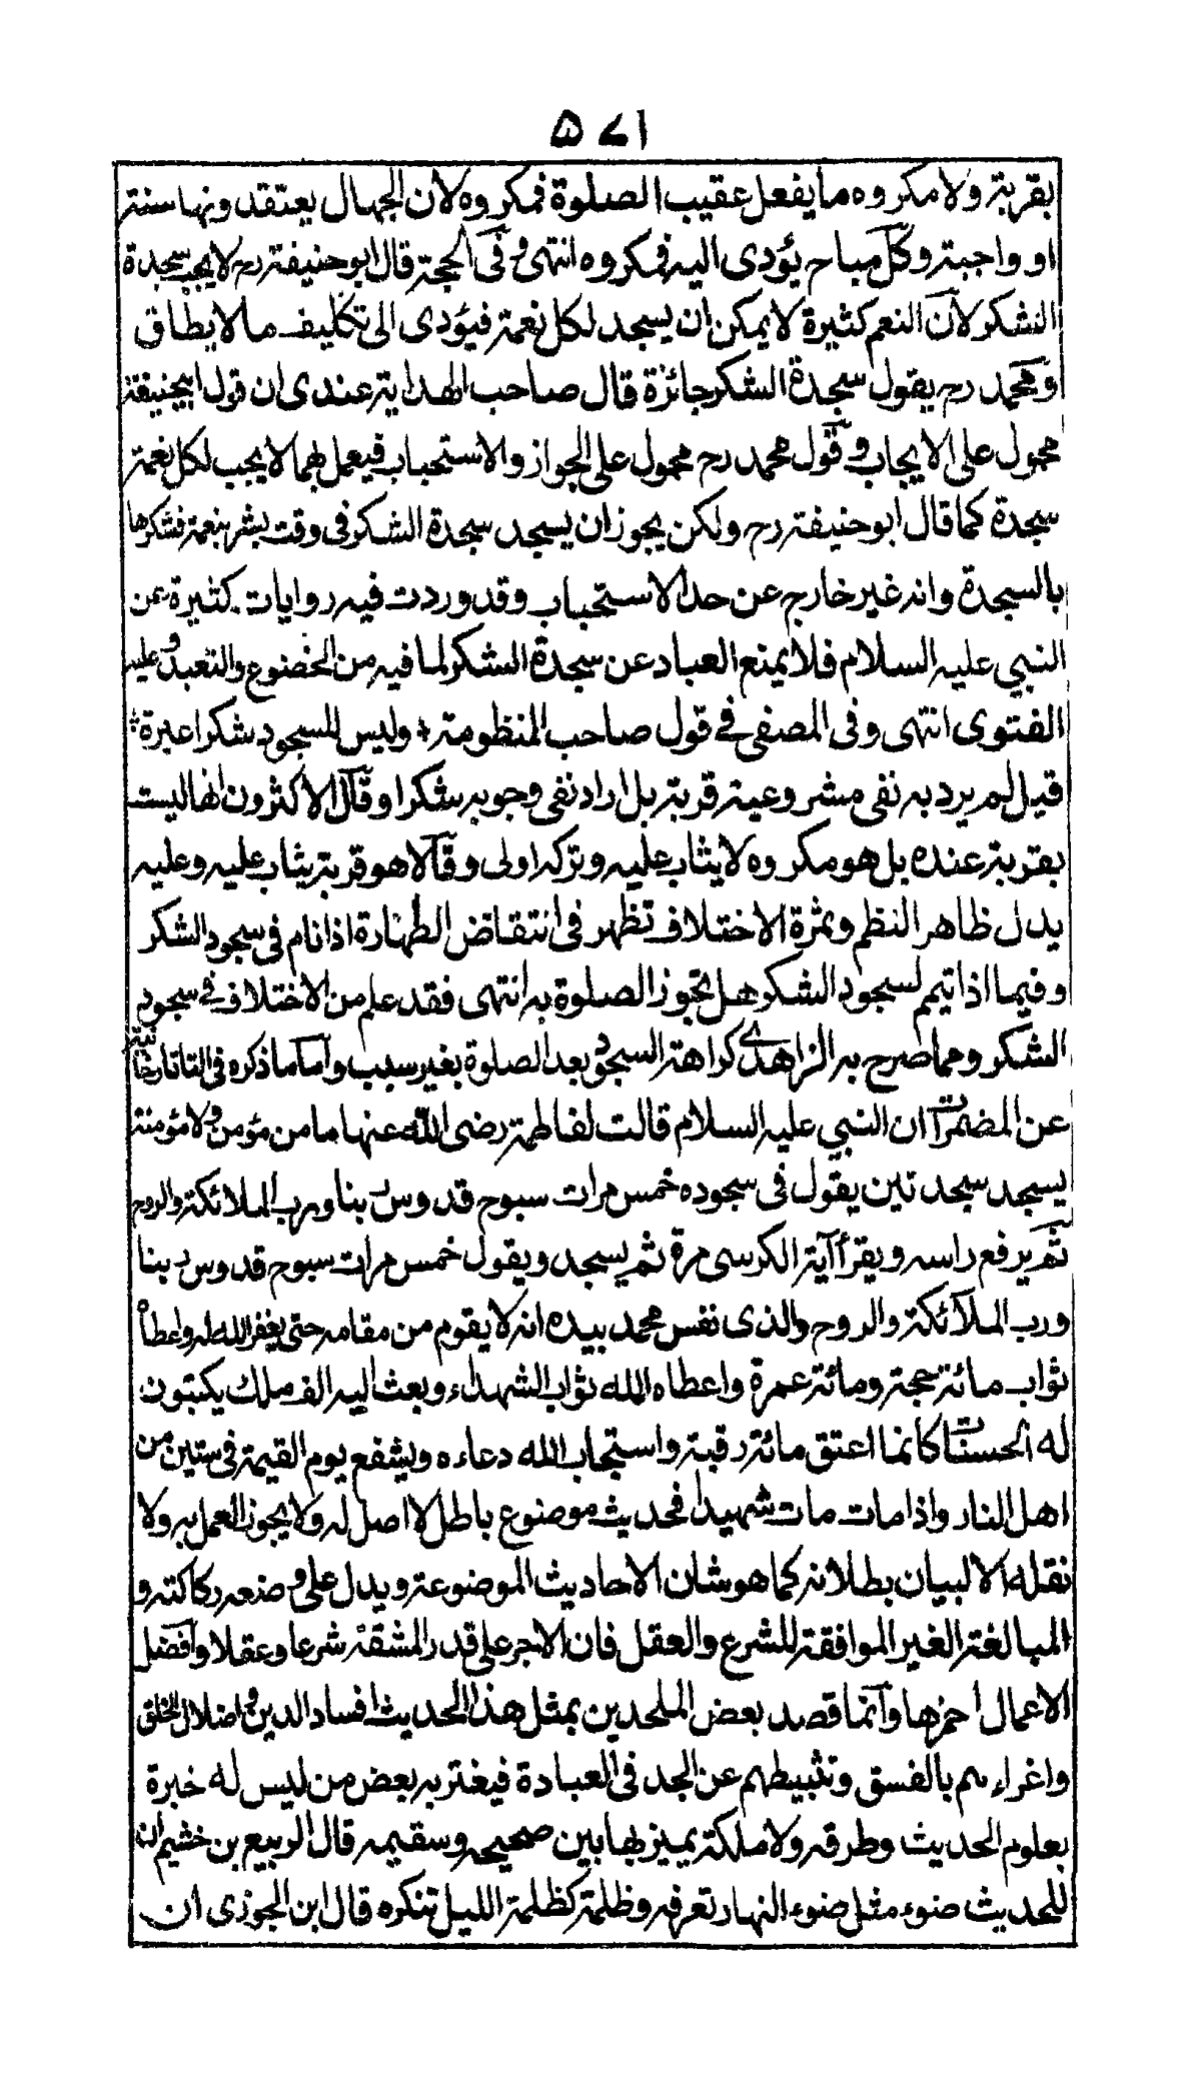 ۵۷۱
بقربة ولا مكروه ما يفعل عقيب الصلوة فمكروه لان الجهال يعتقدونها سنة
او واجبة وكل مباح يؤدى اليه فمكروه انتهى وفى الحجة قال ابو حنيفة رح لا يجب سجدة
الشكر لان النعم كثيرة لا يمكن ان يسجد لكل نعمة فيؤدى الى تكليف ما لا يطاق
ومحمد رح يقول سجدة الشكر جائزة قال صاحب الهداية عندى ان قول ابيحنيفة
محمول على الايجاب وقول محمد رح محمول على الجواز والاستحباب فيعمل بهما لا يجب لكل نعمة
سجدة كما قال ابو حنيفة رح ولكن يجوز ان يسجد سجدة الشكر فى وقت بشر بنعمة فشكرها
بالسجدة وانه غير خارج عن حد الاستحباب وقد وردت فيه روايات كثيرة عن
النبي عليه السلام فلا يمنع العباد عن سجدة الشكر لما فيه من الخضوع والتعبد وعليه
الفتوى انتهى وفى المصفى فى قول صاحب المنظومة وليس للسجود شكرا عبرة
قيل لم يرد به نفى مشروعية قربة بل اراد نفى وجوبه شكرا وقال الاكثرون انها ليست
بقربة عنده بل هو مكروه لا يثاب عليه وتركه اولى وقالا هو قربة يثاب عليه وعليه
يدل ظاهر النظم وثمرة الاختلاف تظهر فى انتقاض الطهارة اذا نام فى سجود الشكر
وفيما اذا تيمم لسجود الشكر هل تجوز الصلوة به انتهى فقد علم من الاختلاف فى سجود
الشكر ومما صرح به الزاهدى كراهة السجود بعد الصلوة بغير سبب واما ما ذكره فى التاتارخانية
عن المضمرات ان النبي عليه السلام قالت لفاطمة رضى الله عنها ما من مؤمن ولا مؤمنة
يسجد سجدتين يقول فى سجوده خمس مرات سبوح قدوس ربنا ورب الملائكة والروح
ثم يرفع راسه ويقرأ آية الكرسى مرة ثم يسجد ويقول خمس مرات سبوح قدوس ربنا
ورب الملائكة والروح والذى نفس محمد بيده انه لا يقوم من مقامه حتى يغفر الله له واعطاه
ثواب مائة حجة ومائة عمرة واعطاه الله ثواب الشهداء وبعث اليه الف ملك يكتبون
له الحسنات كانما اعتق مائة رقبة واستجاب الله دعاءه ويشفع يوم القيمة فى ستين من
اهل النار واذا مات مات شهيدا فحديث موضوع باطل لا اصل له ولا يجوز العمل به ولا
نقله الا لبيان بطلانه كما هو شان الاحاديث الموضوعة ويدل على وضعه ركاكته و
المبالغة الغير الموافقة للشرع والعقل فان الاجر على قدر المشقة شرعا وعقلا وافضل
الاعمال احمزها وانما قصد بعض الملحدين بمثل هذا الحديث افساد الدين واضلال الخلق
واغراءهم بالفسق وتثبيطهم عن الجد فى العبادة فيغتر به بعض من ليس له خبرة
بعلوم الحديث وطرقه ولا ملكة يميز بها بين صحيحه وسقيمه قال الربيع بن خشيم ان
للحديث ضوء مثل ضوء النهار تعرفه وظلمة كظلمة الليل تنكره قال ابن الجوزى ان